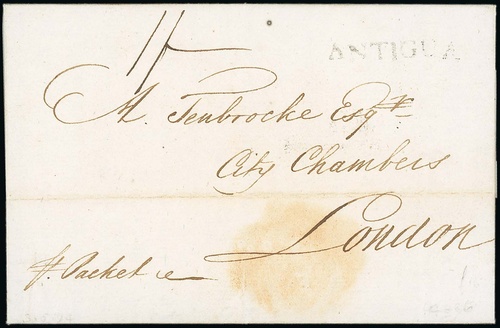 1/-
ANTIGUA
M. Tenbrocke Esqr
City Chambers
London
pr. Packet